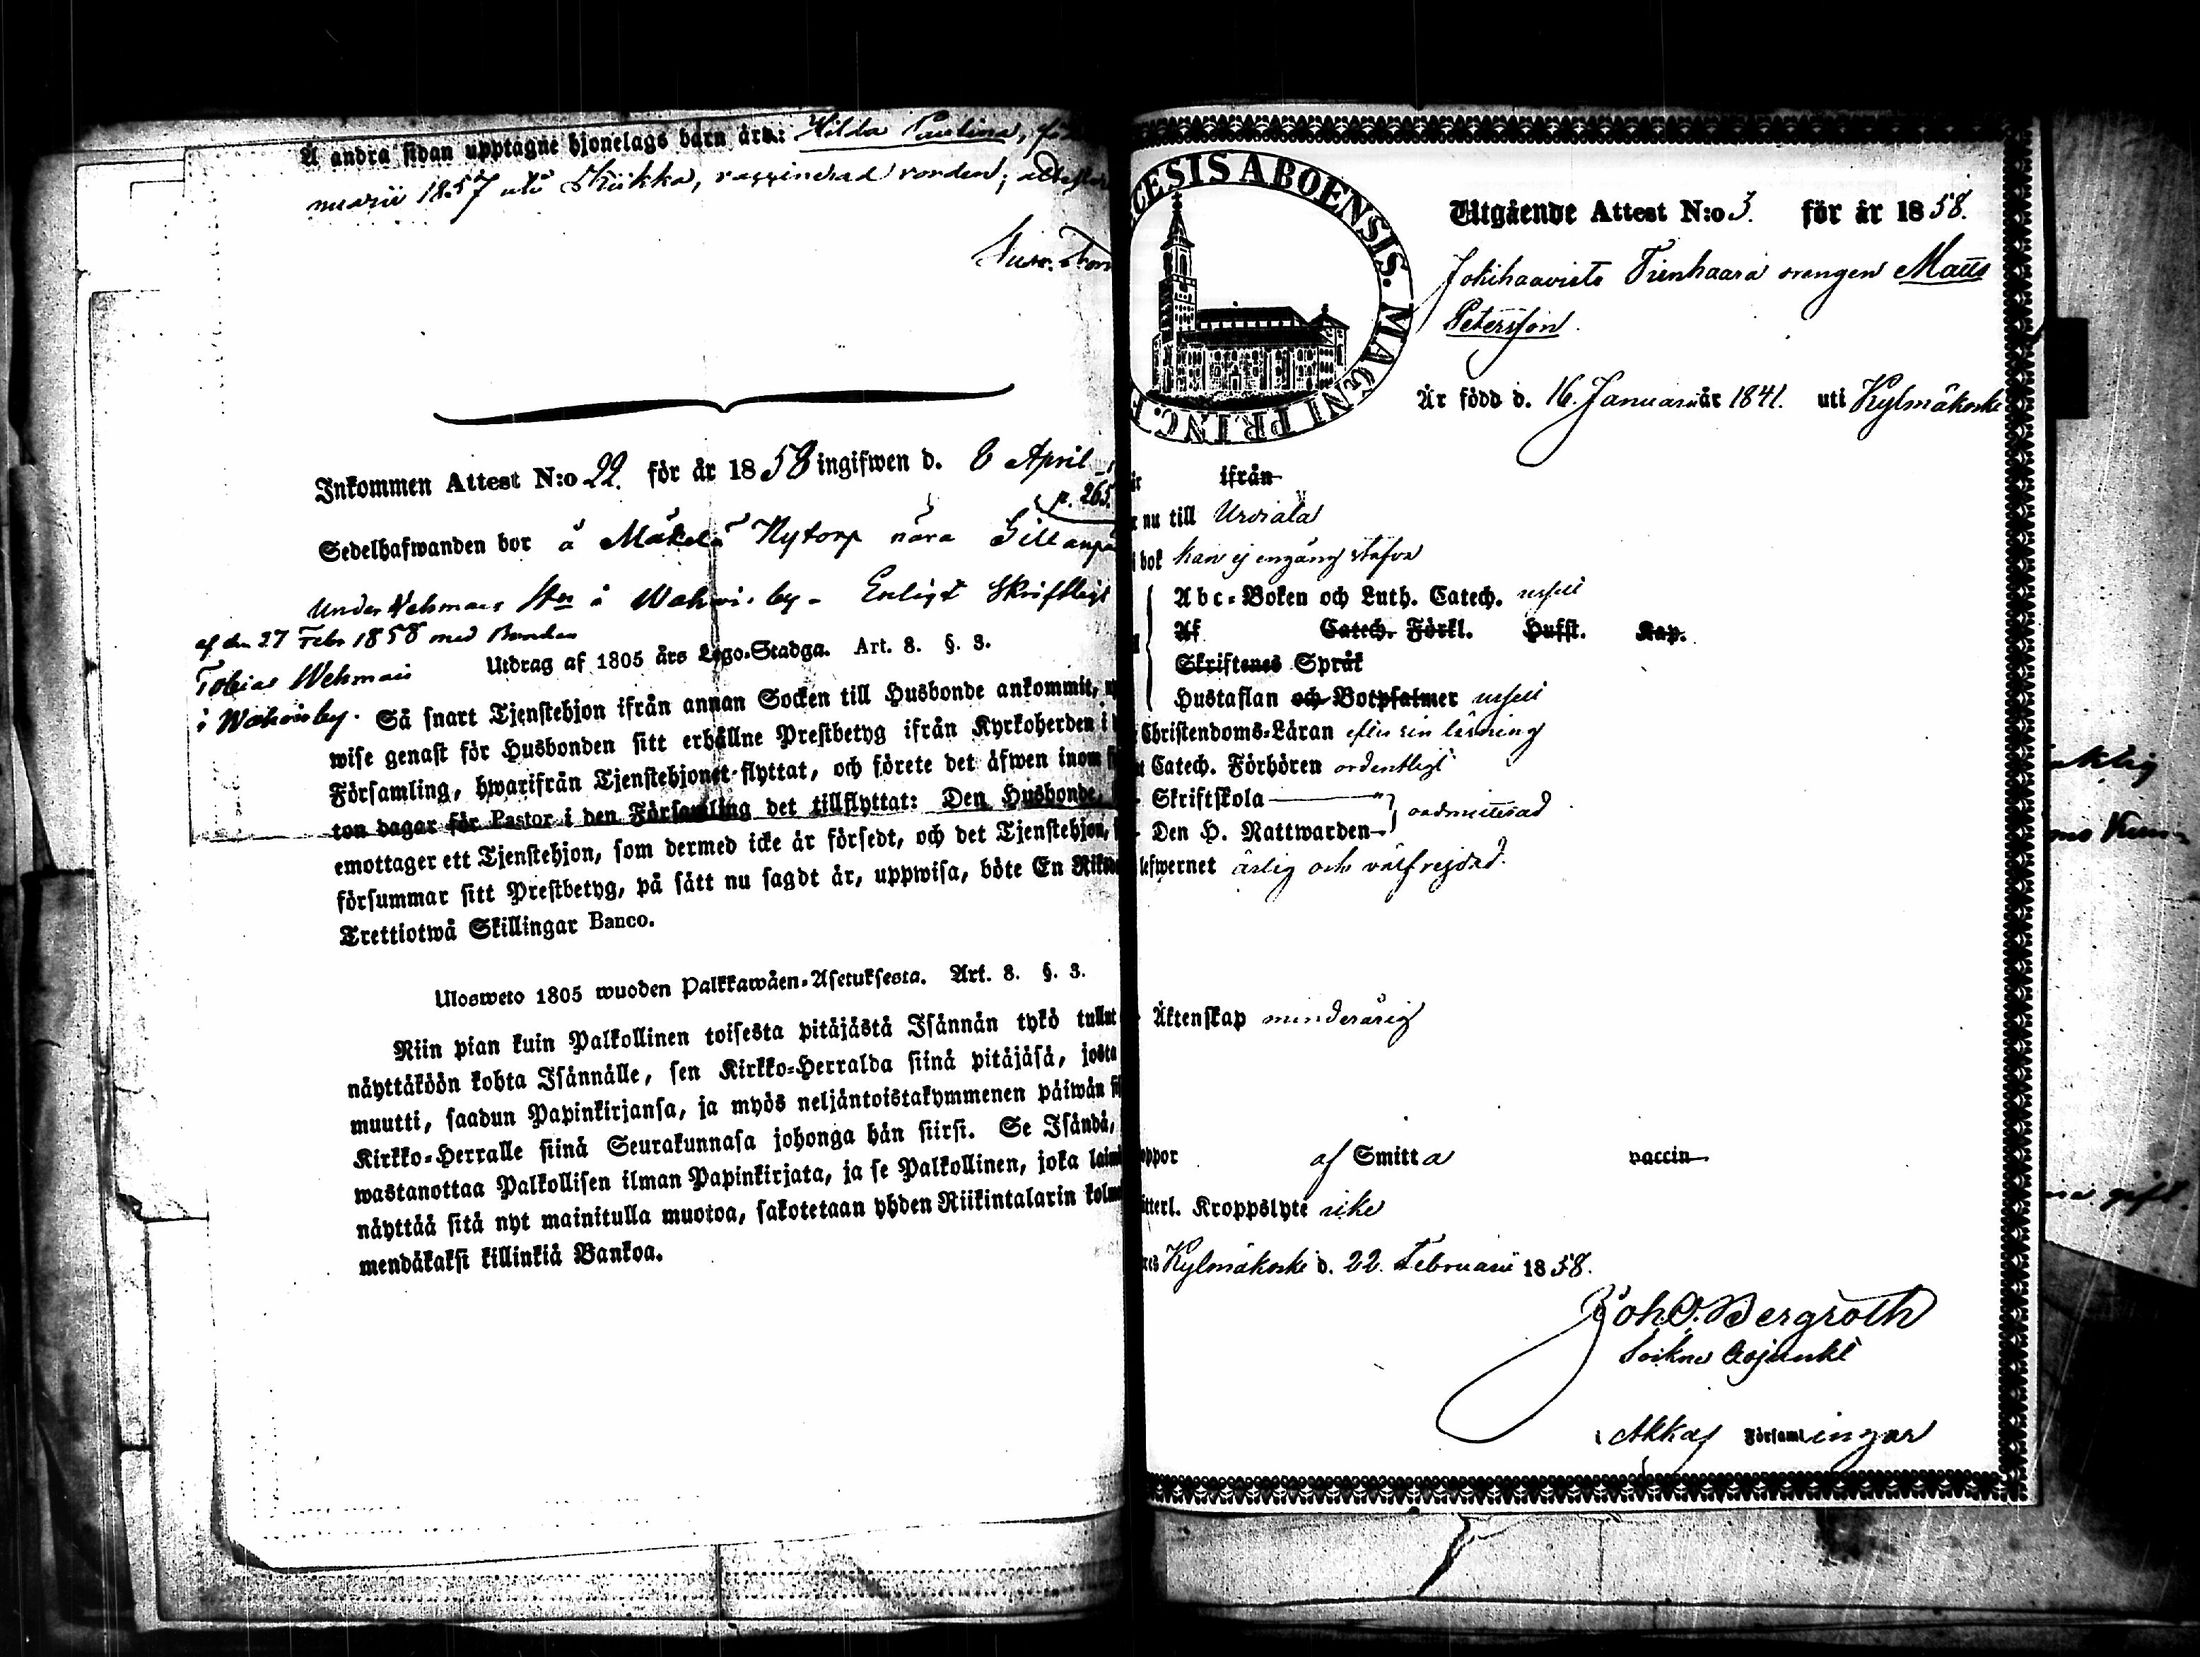 Å andra sidan upptagne hjonelags barn äro: Hilda Paulina,
nuarii 1857 uti Kiikka, vaccinerad vorden;
Inkommen Attest N:o 22. för år 1858 ingifwen d. 8 April
p. 265.
Sedelhafwanden bor å Mäkelä Nytorp nära
under Wehmais å Wahois by. Enligt Skriftligt
af den 27 Febr 1858 med Bonden
Tobias Wehmais
i Wahois by.
Utdrag af 1805 års Lego-Stadga. Art. 8. §. 3.
Så snart Tjenstehjon ifrån annan Socken till Husbonde ankommit,
wise genast för Husbonden sitt erhållne Prestbetyg ifrån Kyrkoherden i
Församling, hwarifrån Tjenstehjonet flyttat, och förete det äfwen inom
ton dagar för Pastor i den Församling det tillflyttat: Den Husbonde,
emottager ett Tjenstehjon, som dermed icke är försedt, och det Tjenstehjon,
försummar sitt Prestbetyg, på sätt nu sagdt är, uppwisa, böte En
Trettiotwå Skillingar Banco.
Ulosweto 1805 wuoden Palkkawäen-Asetuksesta. Art. 8. §. 3.
Niin pian kuin Palkollinen toisesta pitäjästä Isännän tykö tullut
näyttäköön kohta Isännälle, sen Kirkko-Herralda siinä pitäjäsä, josta
muutti, saadun Papinkirjansa, ja myös neljäntoistakymmenen päiwän
Kirkko-Herralle siinä Seurakunnasa johonga hän siirsi. Se Isändä,
wastanottaa Palkollisen ilman Papinkirjata, ja se Palkollinen, joka
näyttää sitä nyt mainitulla muotoa, sakotetaan yhden Riikintalarin
mendäkaksi killinkiä Bankoa.
CESIS ABOENSIS. MAGNI PRINC. F
Utgående Attest N:o 3. för år 1858.
Jokihaavisto Tienhaara drengen Matts
Petersson.
Är född d. 16. Januarii år 1841. uti Kylmäkoski
ifrån
nu till Urdiala
bok kan ej engång stafva
Abc-Boken och Luth. Catech.
Af Catech. Förkl. Hufst. Kap.
Skriftenes Språk
Hustaflan och Botpsalmer
Christendoms-Läran efter sin läsning
Catech. Förhören ordentligt
Skriftskola
Den H. Nattwarden admitterad
lefwernet ärlig och välfrejdad.
Äktenskap minderårig
oppor af Smitta vaccin
itterl. Kroppslyte icke
res Kylmäkoski d. 22. Februarii 1858.
Joh. O. Bergroth
Sockne Adjunkt
i Akkas Församlingar